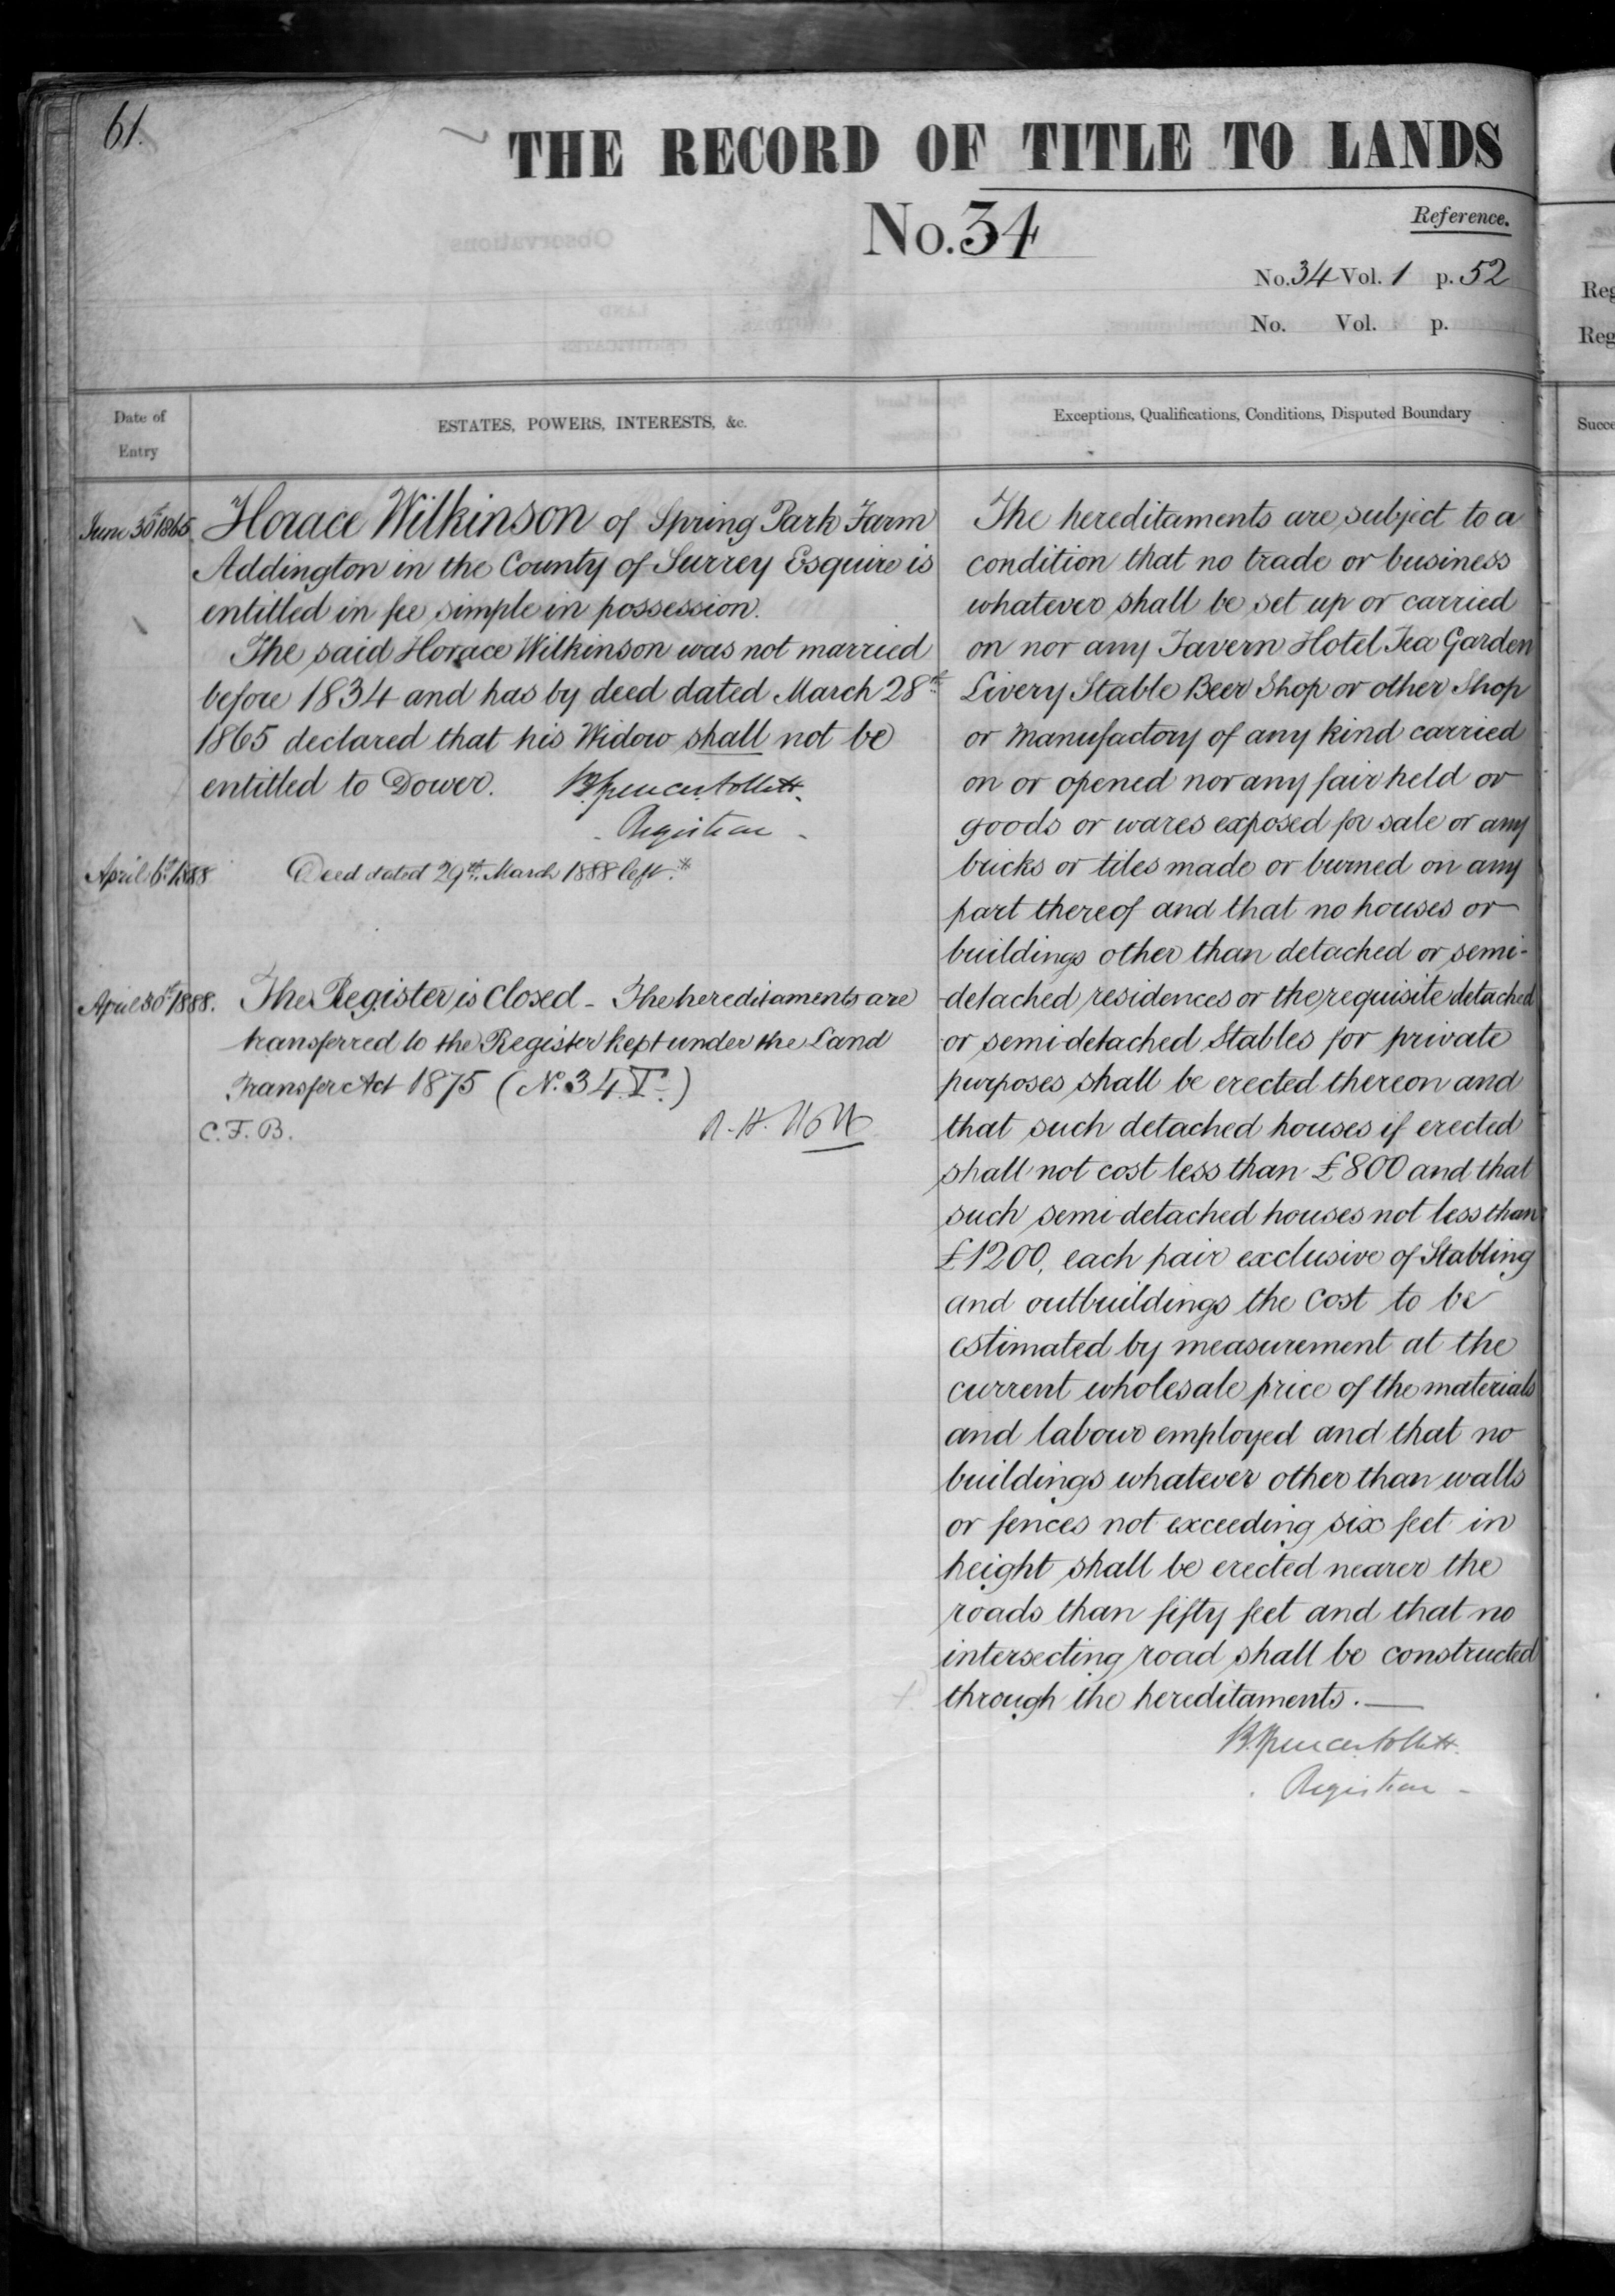 61.
THE RECORD OF TITLE TO LANDS
No. 34
Reference.
No. 34 Vol. 1 p. 52
No. Vol. p.
Date of
Entry
ESTATES, POWERS, INTERESTS, &c.
Exceptions, Qualifications, Conditions, Disputed Boundary
June 30th 1865
Horace Wilkinson of Spring Park Farm
Addington in the County of Surrey Esquire is
entitled in fee simple in possession.
The said Horace Wilkinson was not married
before 1834 and has by deed dated March 28th
1865 declared that his Widow shall not be
entitled to Dower. B. Spencer Follett.
- Registrar -
April 6th 1888
Deed dated 29th March 1888 left.*
April 30th 1888.
The Register is Closed - The hereditaments are
transferred to the Register kept under the Land
Transfer Act 1875 (No. 34. T.)
C. F. B.
R. H. Holt
The hereditaments are subject to a
condition that no trade or business
whatever shall be set up or carried
on nor any Tavern Hotel Tea Garden
Livery Stable Beer Shop or other Shop
or Manufactory of any kind carried
on or opened nor any fair held or
goods or wares exposed for sale or any
bricks or tiles made or burned on any
part thereof and that no houses or
buildings other than detached or semi-
detached residences or the requisite detached
or semi-detached Stables for private
purposes shall be erected thereon and
that such detached houses if erected
shall not cost less than £800 and that
such semi-detached houses not less than
£1200, each pair exclusive of Stabling
and outbuildings the cost to be
estimated by measurement at the
current wholesale price of the materials
and labour employed and that no
buildings whatever other than walls
or fences not exceeding six feet in
height shall be erected nearer the
roads than fifty feet and that no
intersecting road shall be constructed
through the hereditaments. —
B. Spencer Follett.
. Registrar -
Reg
Reg
Succe